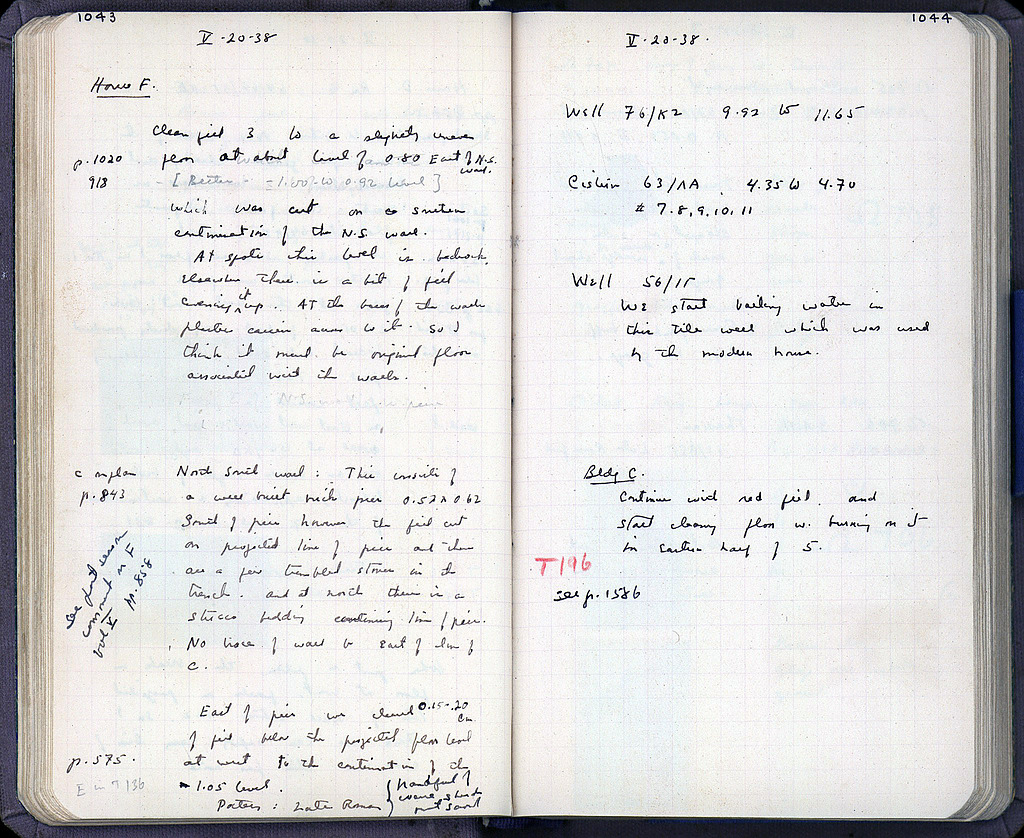 1043
V-20-38
House F.
Clean fill 3 to a slightly uneven
p.1020 floor at about level of 0.80 East of N.S. wall.
918 - [Better - = 1.00 to 0.92 level]
which was cut on a southern
continuation of the N.S wall.
At spots this level is bedrock,
elsewhere there is a bit of fill
evening it up. AT the base of the walls
plaster comes down to it. So I
think it must be original floor
associated with the walls.
N.S.
c on plan North South wall: This consists of
p.843 a well built pier 0.52 x 0.62
South of pier however the fill cut
on projected line of pier and there
are a few tumbled stones in the
trench. and at north there is a
stucco bedding continuing line of pier.
No trace of wall to East of line of
C.
See last season
comment on F
vol V p. 858
East of pier we cleared 0.15-.20 cm.
of fill below the projected floor level
p.575. at west to the continuation of the
E in T 136 1.05 level.
Pottery: Late Roman { Handful of
were sherds
not saved
1044
V-20-38.
Well 76/KZ 9.92 to 11.65
Cistern 63/ΛΑ 4.35 to 4.70
# 7.8,9,10,11
Well 56/ΙΓ
We start bailing water in
this tile well which was used
by the modern house.
Bldg C.
Continue with red fill and
start cleaning floor w. burning on it
in Eastern half of 5.
T196
see p.1586